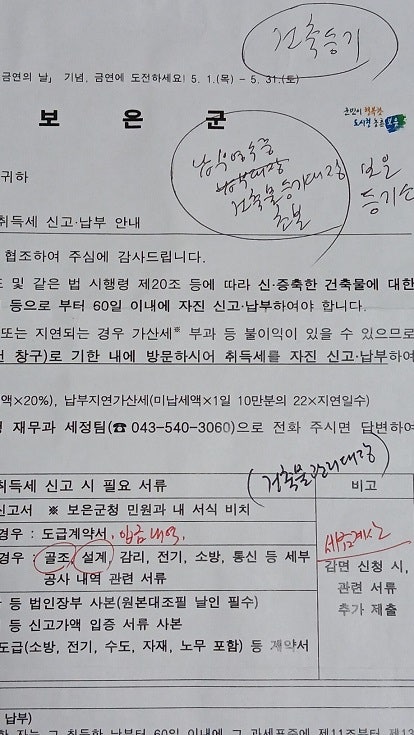 건축등기
금연의 날」 기념, 금연에 도전하세요! 5. 1.(목) ~ 5. 31.(토)
보 은 군
군민이 행복한
보은
귀하
납부영수증
건축물 등기대장
초본
보은
등기소
취득세 신고·납부 안내
협조하여 주심에 감사드립니다.
및 같은 법 시행령 제20조 등에 따라 신·증축한 건축물에 대한
등으로 부터 60일 이내에 자진 신고·납부하여야 합니다.
또는 지연되는 경우 가산세※ 부과 등 불이익이 있을 수 있으므로
창구)로 기한 내에 방문하시어 취득세를 자진 신고·납부하여
액×20%), 납부지연가산세(미납세액×1일 10만분의 22×지연일수)
재무과 세정팀(☎ 043-540-3060)으로 전화 주시면 답변하여
(건축물관리대장)
취득세 신고 시 필요 서류 비고
신고서 ※ 보은군청 민원과 내 서식 비치
경우 : 도급계약서, 입금내역,
세금계산
경우 : 골조, 설계, 감리, 전기, 소방, 통신 등 세부
공사 내역 관련 서류
감면 신청 시,
관련 서류
추가 제출
등 법인장부 사본(원본대조필 날인 필수)
등 신고가액 입증 서류 사본
도급(소방, 전기, 수도, 자재, 노무 포함) 등 계약서
납부)
자는 그 취득한 날부터 60일 이내에 그 과세표준에 제11조부터